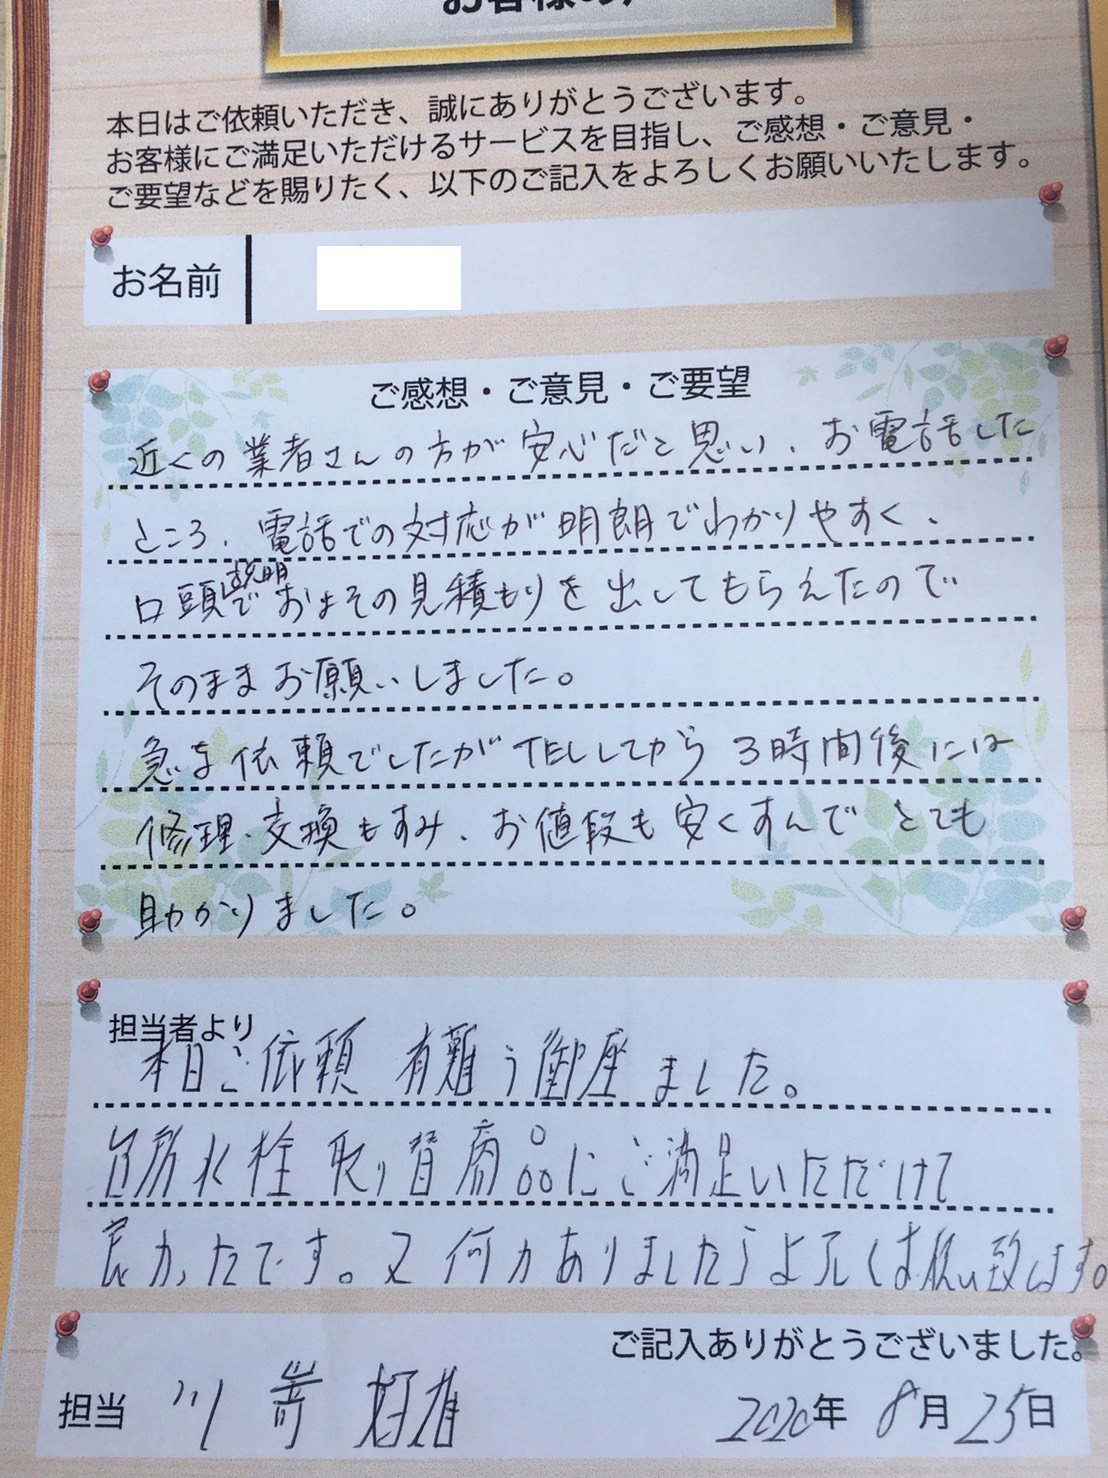 お客様の
本日はご依頼いただき、誠にありがとうございます。
お客様にご満足いただけるサービスを目指し、ご感想・ご意見・
ご要望などを賜りたく、以下のご記入をよろしくお願いいたします。
お名前
ご感想・ご意見・ご要望
近くの業者さんの方が安心だと思い、お電話した
ところ、電話での対応が明朗でわかりやすく、
説明
口頭でおよその見積もりを出してもらえたので
そのままお願いしました。
急な依頼でしたがTELしてから3時間後には
修理・交換もすみ、お値段も安くすんでとても
助かりました。
担当者より
本日ご依頼 有難う御座ました。
台所水栓 取り替商品にご満足いただけて
良かったです。又何かありましたらよろしくお願い致します。
ご記入ありがとうございました。
担当 川嵜
2020年 8月25日